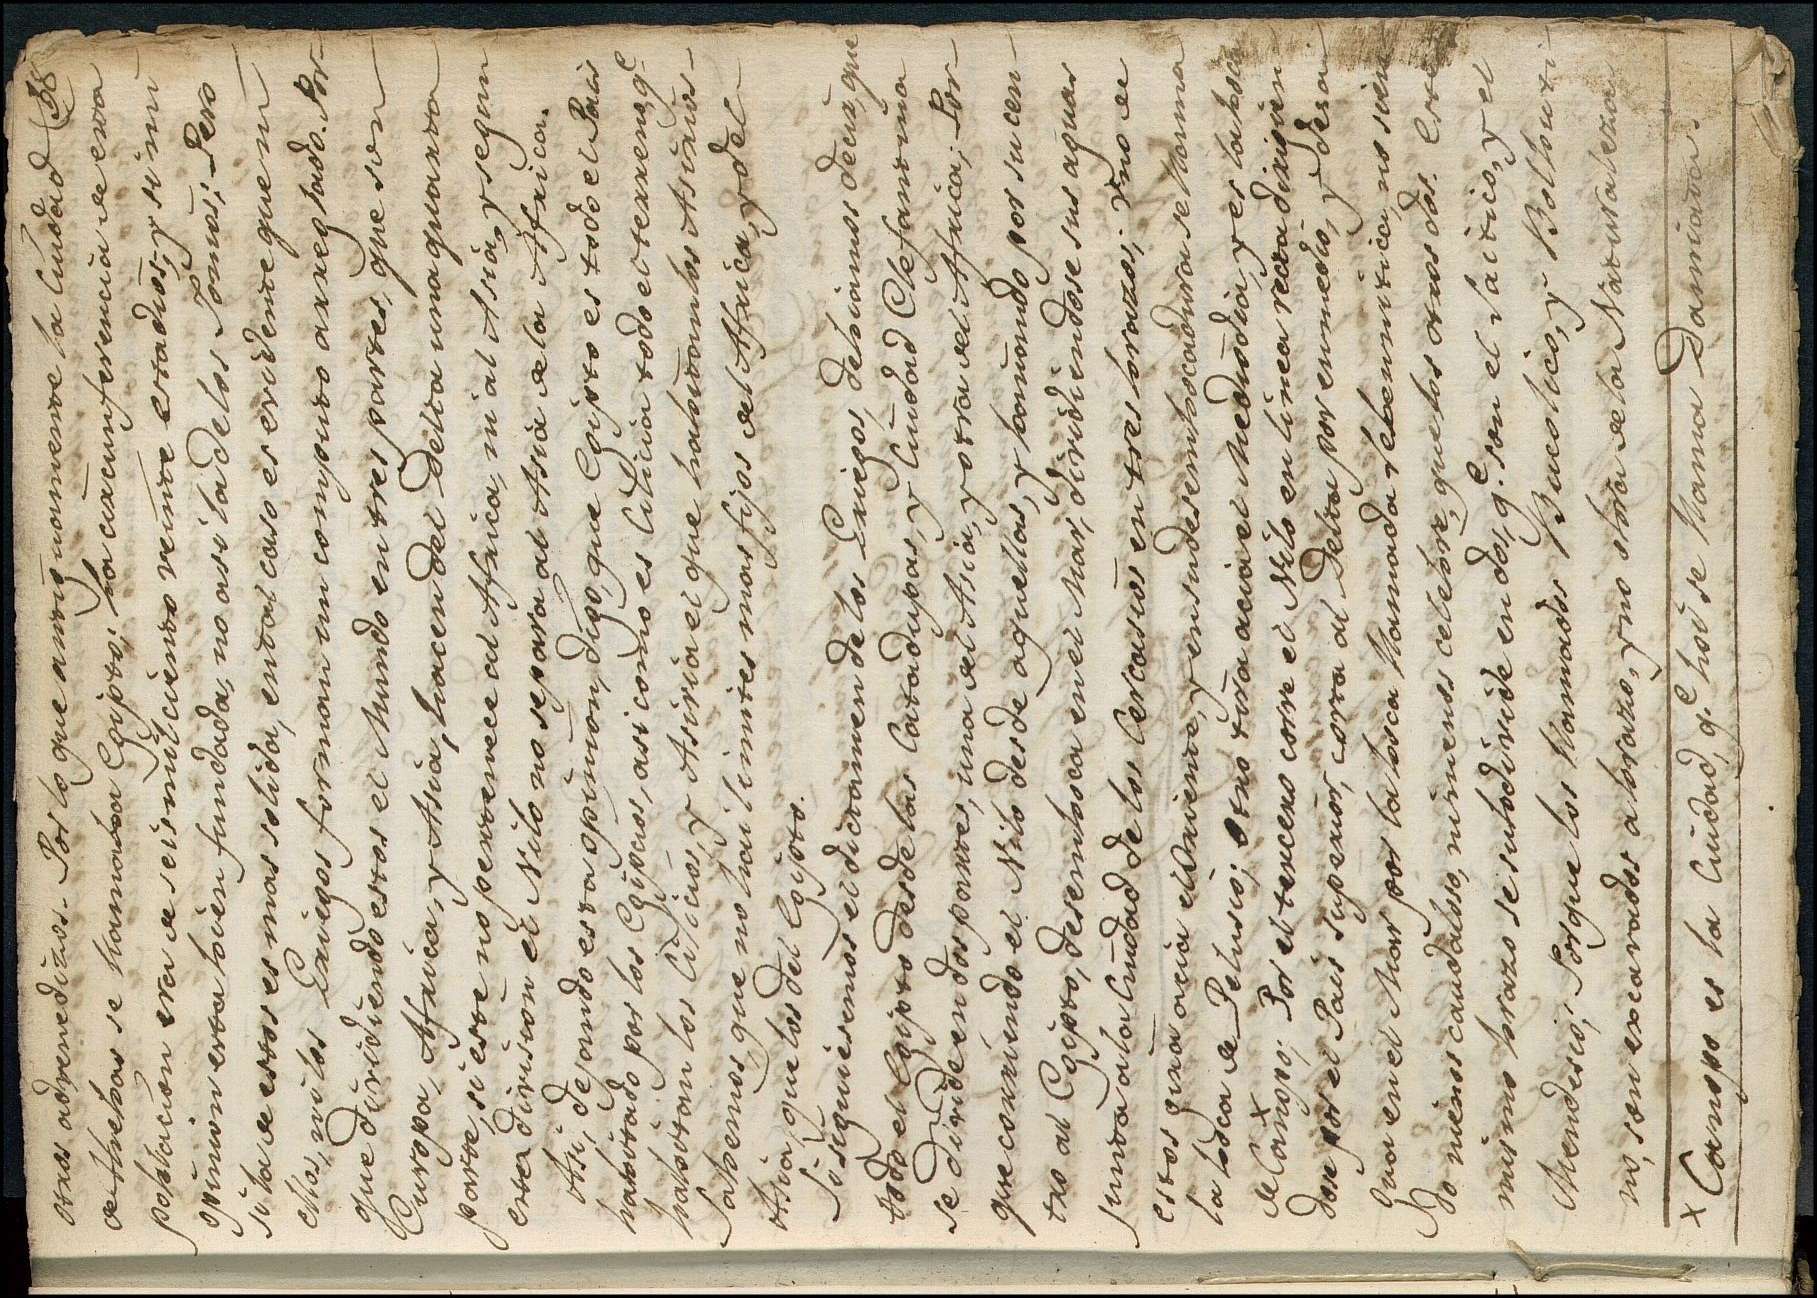 otras advenedizas. Por lo que antiguamente la Ciudad
de Thebas se llamaba Egipto: la circunferencia de esta
poblacion era de seis mil ciento veinte estadios, y si mi
opinion esta bien fundada, no asi la de los Jonios; Pero
si la de estos es mas solida, en tal caso es evidente que ni
ellos, ni los Griegos forman un computo arreglado. Por-
que dividiendo estos el Mundo en tres partes, que son
Europa, Africa, y Asia, hacen del Delta una quarta
parte, si este no pertenece al Africa, ni al Asia, y segun
esta division el Nilo no separa al Asia de la Africa.
Asi, dejando esta opinion, digo, que Egipto es todo el Pais
habitado por los Egipcios, asi como es Cilicia todo el terreno, q.e
habitan los Cilicios, y Asiria el que habitan los Asirios-
Sabemos, que no hai limites mas fijos del Africa, y del
Asia, que los del Egipto.
Si siguiesemos el dictamen de los Griegos, debiamos decir, que
todo el Egipto desde las Catadupas, y Ciudad Elefantina
se divide en dos partes, una del Asia, y otra del Africa; Por-
que corriendo el Nilo desde aquellas, y tomando por su cen-
tro al Egipto, desemboca en el Mar, dividiendose sus aguas
junto a la Ciudad de los Cercasios en tres brazos; Uno de
estos guia acia el Oriente, y en su desembocadura se llama
la boca de Pelusio; Otro tira acia el Mediodia, y es la boca
de Canopo; x Por el tercero corre el Nilo en linea recta dirigien
dose por el Pais superior, corta al Delta por en medio, y desa
gua en el Mar por la boca llamada Sebennitica, no sien
do menos caudaloso, ni menos celebre, que los otros dos. Este
mismo brazo se subdivide en dos, q.e son el Saitico, y el
Mendesio; Porque los llamados Bucolico, y Bolbiti
no, son excavados a brazo, y no obra de la Naturaleza
x Canopo es la Ciudad, q.e hoi se llama Damiata.